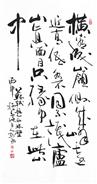 橫看成嶺側成峰
遠近高低各不同不識廬
山真面目只緣身在此山
中
蘇軾題西林壁
丙申